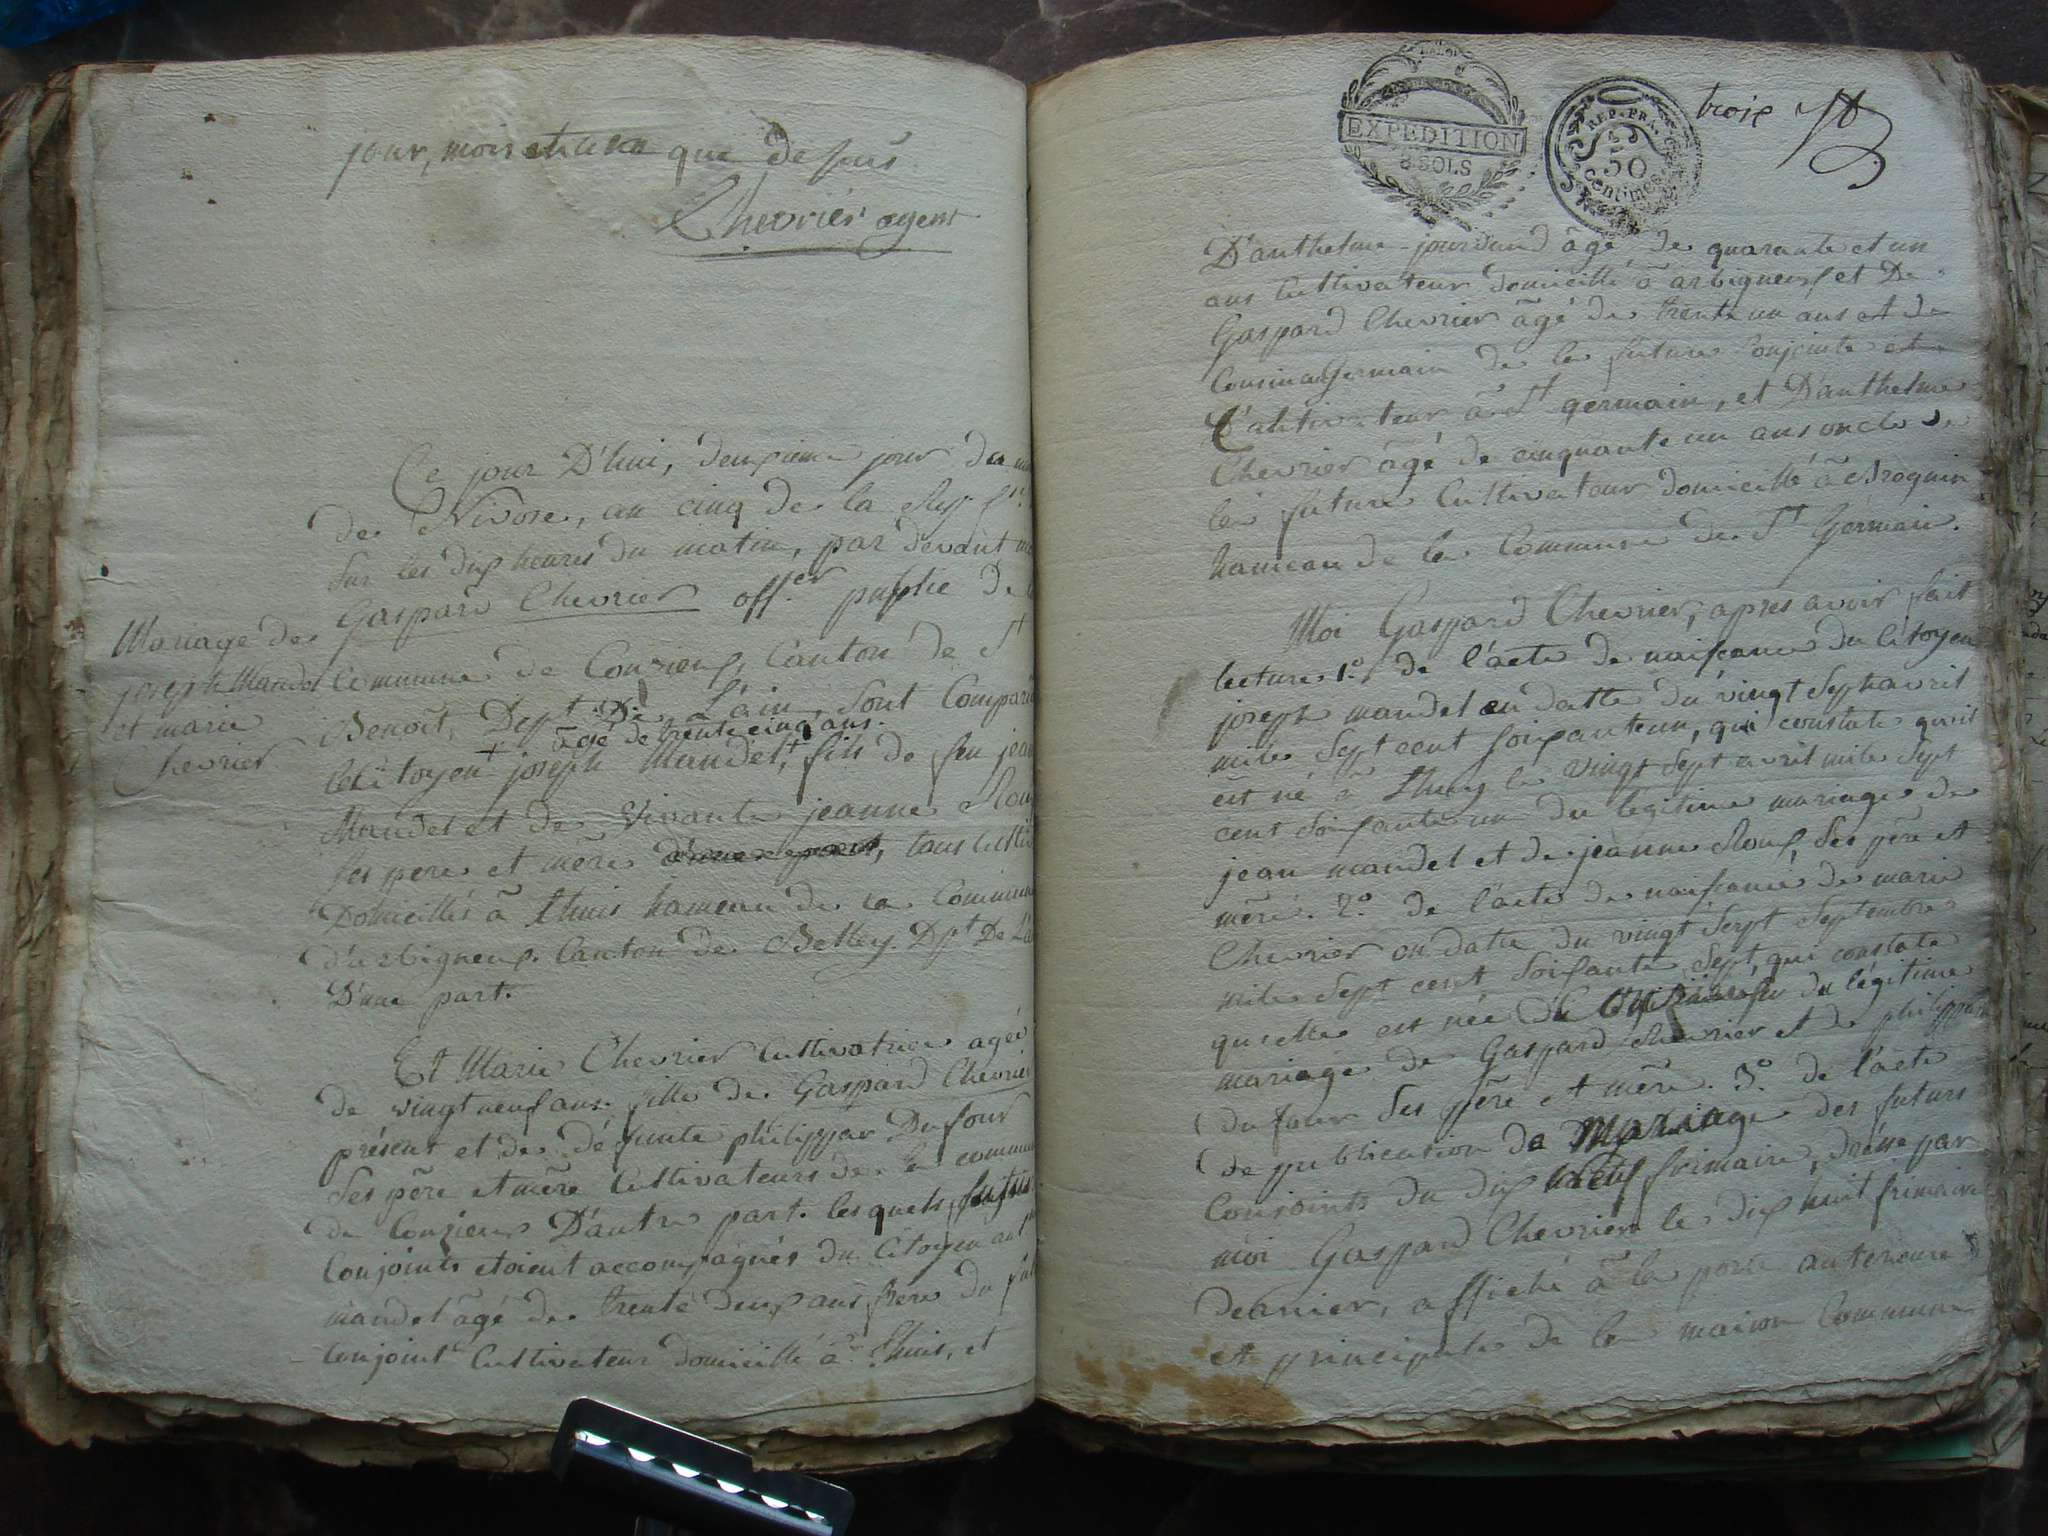 jour, mois et an que dessus
Chevrier agent
Ce jour D'hui, deuxieme jour du
de Nivose, an cinq de la Rep.
Sur les dix heures du matin, par devant
Gaspard Chevrier off.er public de
Commune de Conzieux, Canton de St
Benoit, Dept. De L'ain, sont
âgé de trente cinq ans.
le Citoyen + joseph Mandet, fils de feu jean
Mandet et de vivante jeanne Roux
ses pere et mere tous
Domicilliés à thuis hameau de la Commune
d'arbigneux. Canton de Belley Dpt De L'ain
D'une part.
Et Marie Chevrier Cultivatrice agée
de vingt neuf ans. fille de Gaspard Chevrier
présent et de défunte philippar Dufour
Ses père et mère Cultivateurs de la commune
de Conzieux D'autre part. lesquels futurs
Conjoints etoient accompagnés du Citoyen
mandet âgé de trente deux ans frere du
Conjoint Cultivateur domicillé à thuis, et
Mariage de
joseph Mandet
et marie
Chevrier
EXPEDITION
8 SOLS
REP. FRA.
50
centimes
trois
D'anthelme jourdand âgé de quarante et un
ans Cultivateur domicillé à arbigneux et De
Gaspard Chevrier âgé de trente un ans et de
Cousin Germain de la future Conjointe et
Cultivateur à St germain, et D'anthelme
Chevrier âgé de cinquante un ans oncle de
la future Cultivateur domicillé à Brognin
hameau de la Commune de St Germain.
Moi Gaspard Chevrier, apres avoir fait
lecture 1.° de l'acte de naissance du Citoyen
joseph mandet en datte du vingt sept avril
mile sept cent soixante un, qui constate qu'il
est né à thuey le vingt sept avril mile sept
cent soixante un du légitime mariage de
jean mandet et de jeanne Roux, ses père et
mère. 2.° de l'acte de naissance de marie
Chevrier en datte du vingt sept septembre
mile sept cent soixante sept qui constate
qu'elle est née à du légitime
mariage de Gaspard Chevrier et de philippar
du four ses père et mère. 3.° de l'acte
de publication de Mariage des futurs
Conjoints du dix huit frimaire, dréssé par
moi Gaspard Chevrier le dix huit frimaire
dernier, affiché à la porte anterieure
et principale de la maison Commune